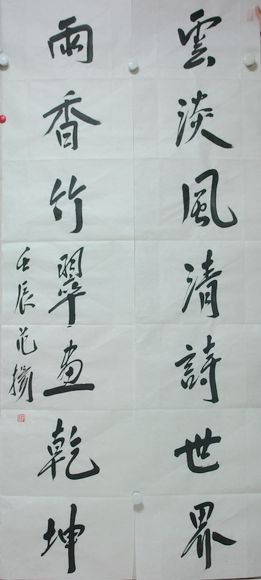 雲淡風清詩世界
雨香竹翠畫乾坤
壬辰范揚